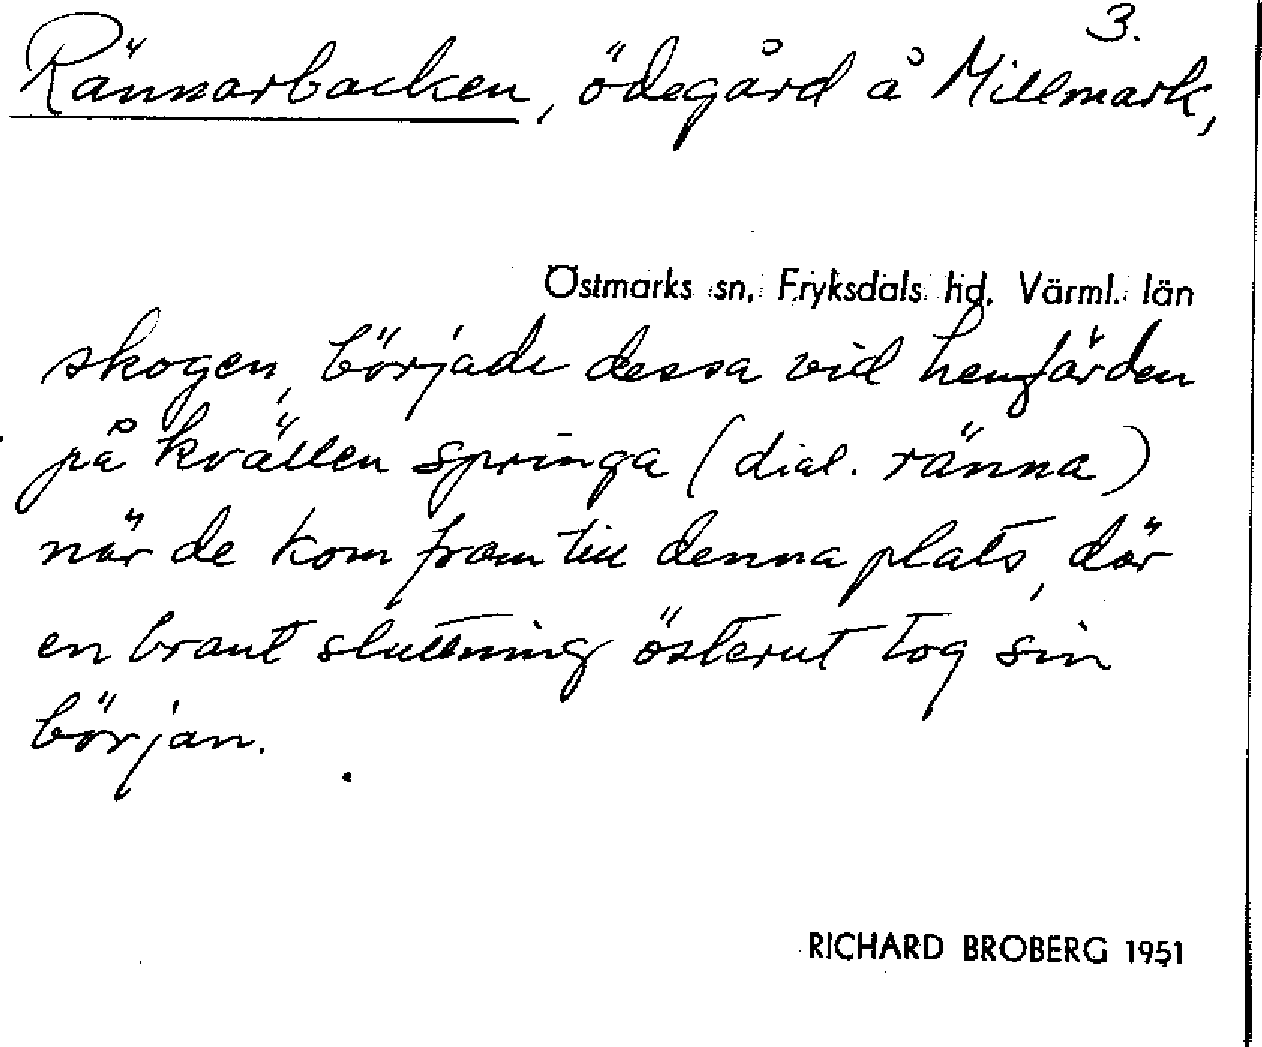 3.
Rännarbacken, ödegård å Millmark,
Östmarks sn, Fryksdals hd. Värml. län
skogen, började dessa vid hemfärden
på kvällen springa (dial. ränna)
när de kom fram till denna plats, där
en brant sluttning österut tog sin
början.
RICHARD BROBERG 1951